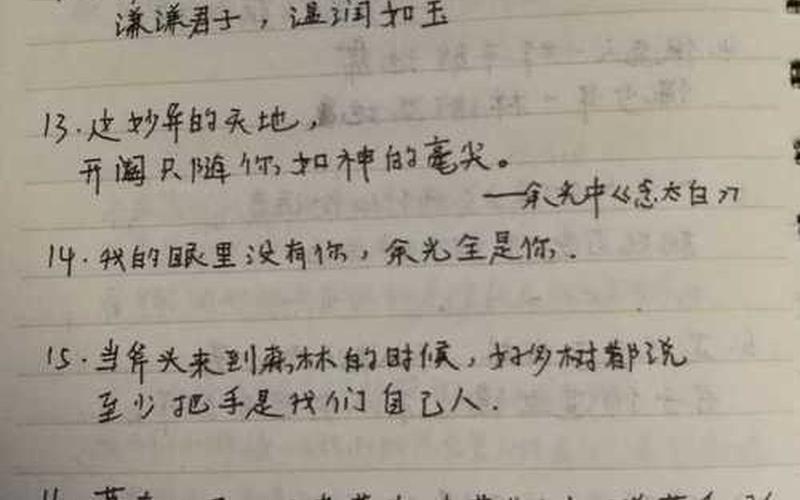 谦谦君子，温润如玉
13.这妙异的天地，
开阖只随你如神的毫尖。
——余光中《念太白》
14.我的眼里没有你，余光全是你.
15.当斧头来到森林的时候，好多树都说
至少把手是我们自己人.